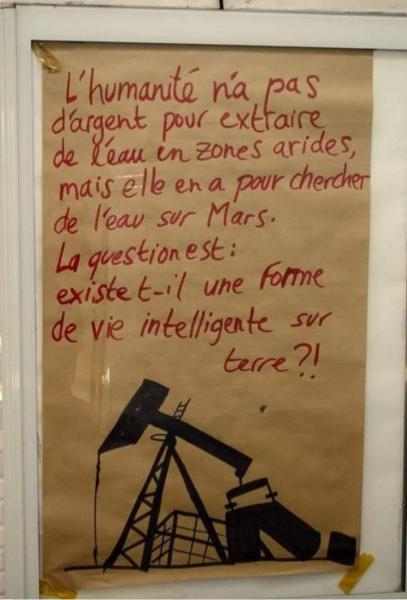 L'humanité n'a pas
d'argent pour extraire
de l'eau en zones arides,
mais elle en a pour chercher
de l'eau sur Mars.
La question est :
existe t-il une forme
de vie intelligente sur
terre ?!